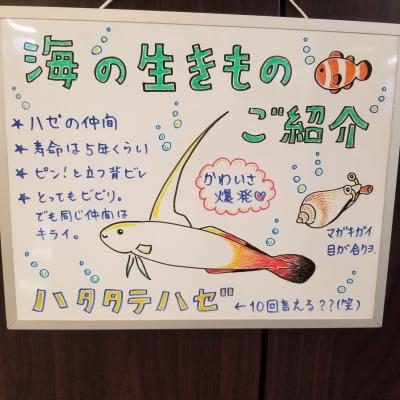 海の生きもの
ご紹介
★ ハゼの仲間
★ 寿命は5年くらい
★ ピン!と立つ背ビレ
★ とってもビビリ。
でも同じ仲間は
キライ。
かわいさ
爆発♡
マガキガイ
目が合うヨ
ハタタテハゼ
←10回言える??(笑)